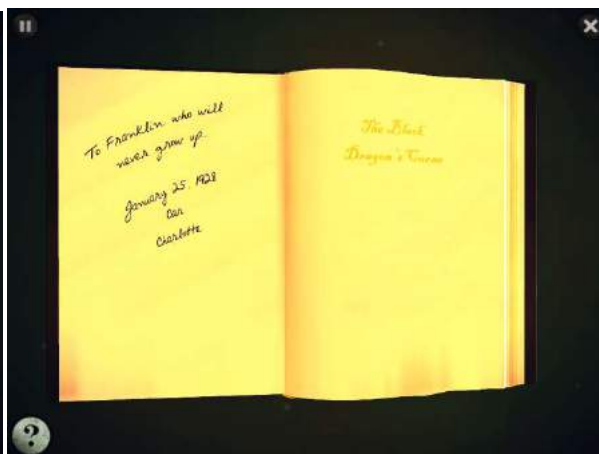 To Franklin who will
never grow up.
January 25, 1928
Charlotte
The Black
Dragon's Curse
?